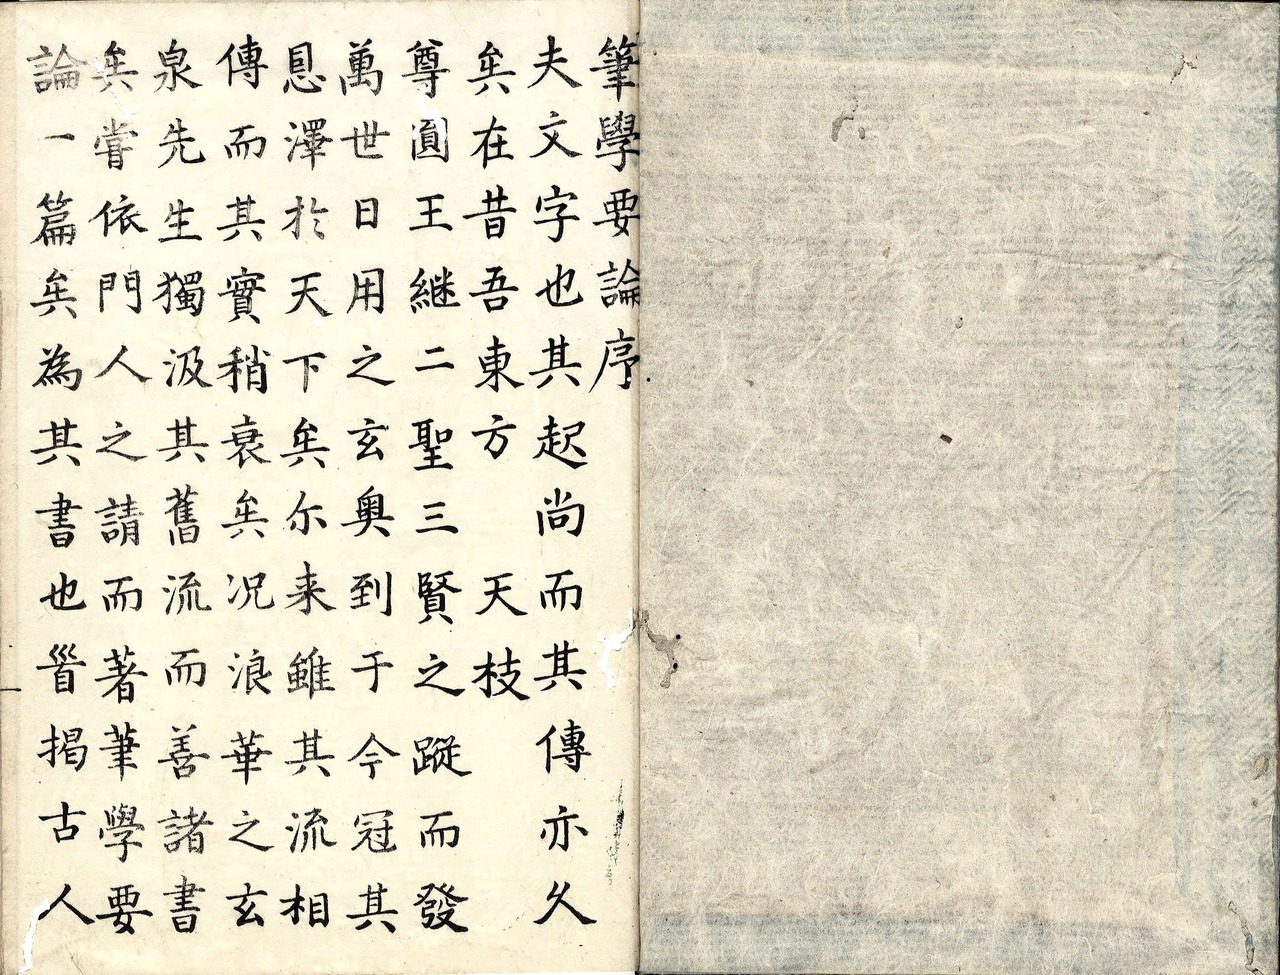 筆學要論序
夫文字也其起尚而其傳亦久
矣在昔吾東方　天枝
尊圓王継二聖三賢之蹤而發
萬世日用之玄奧到于今冠其
恩澤於天下矣尓来雖其流相
傳而其實稍衰矣况浪華之玄
泉先生獨汲其舊流而善諸書
矣嘗依門人之請而著筆學要
論一篇矣為其書也首揭古人